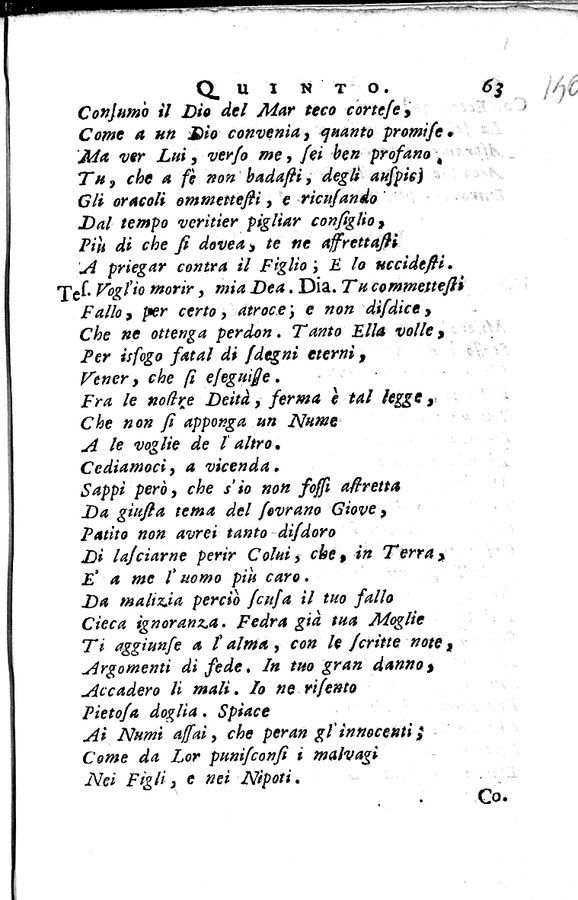 QUINTO. 63
Conſumò il Dio del Mar teco corteſe,
Come a un Dio convenia, quanto promiſe.
Ma ver Lui, verſo me, ſei ben profano.
Tu, che a fè non badaſti, degli auſpicj
Gli oracoli ommetteſti, e ricuſando
Dal tempo veritier pigliar conſiglio,
Più di che ſi dovea, te ne affrettaſti
A priegar contra il Figlio; E lo uccideſti.
Teſ. Vogl'io morir, mia Dea. Dia. Tu commetteſti
Fallo, per certo, atroce; e non diſdice,
Che ne ottenga perdon. Tanto Ella volle,
Per isfogo fatal di ſdegni eterni,
Vener, che ſi eſeguiſſe.
Fra le noſtre Deità, ferma è tal legge,
Che non ſi apponga un Nume
A le voglie de l'altro.
Cediamoci, a vicenda.
Sappi però, che s'io non foſſi aſtretta
Da giuſta tema del ſovrano Giove,
Patito non avrei tanto diſdoro
Di laſciarne perir Colui, che, in Terra,
E' a me l'uomo più caro.
Da malizia perciò ſcuſa il tuo fallo
Cieca ignoranza. Fedra già tua Moglie
Ti aggiunſe a l'alma, con le ſcritte note,
Argomenti di fede. In tuo gran danno,
Accadero li mali. Io ne riſento
Pietoſa doglia. Spiace
Ai Numi aſſai, che peran gl'innocenti;
Come da Lor puniſconſi i malvagi
Nei Figli, e nei Nipoti.
Co.